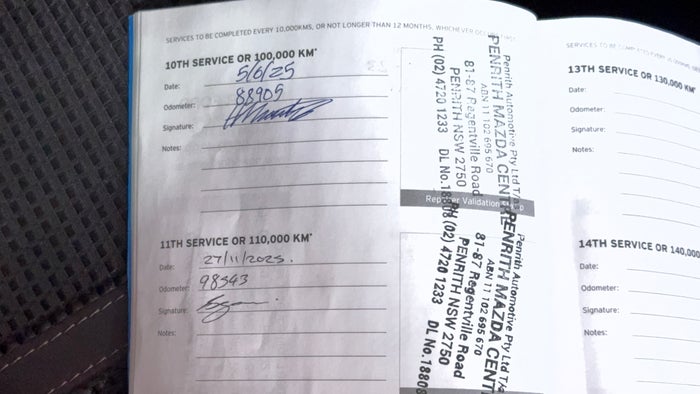 SERVICES TO BE COMPLETED EVERY 10,000KMS, OR NOT LONGER THAN 12 MONTHS, WHICHEVER
10TH SERVICE OR 100,000 KM*
Date: 5/6/25
Odometer: 88905
Signature:
Notes:
Penrith Automotive Pty Ltd T/
PENRITH MAZDA CENT
ABN 11 102 695 670
81-87 Regentville Road
PENRITH NSW 2750
PH (02) 4720 1233 DL No.18808
11TH SERVICE OR 110,000 KM*
Date: 27/11/2025.
Odometer: 98543
Signature:
Notes:
Penrith Automotive Pty Ltd T/a
PENRITH MAZDA CENT
ABN 11 102 695 670
81-87 Regentville Road
PENRITH NSW 2750
PH (02) 4720 1233 DL No.18808
13TH SERVICE OR 130,000 KM*
Date:
Odometer:
Signature:
Notes:
14TH SERVICE OR 140,000
Date:
Odometer:
Signature:
Notes: